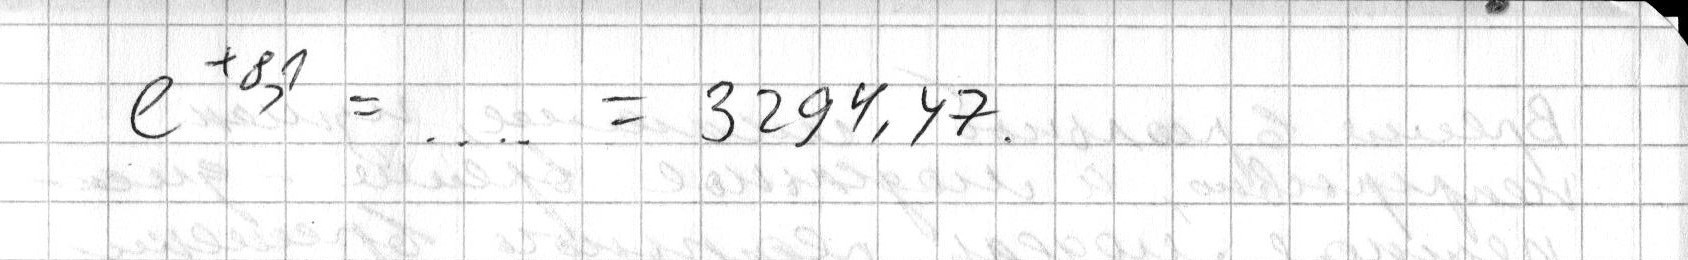 e^{+8,1} = .... = 3294,47.